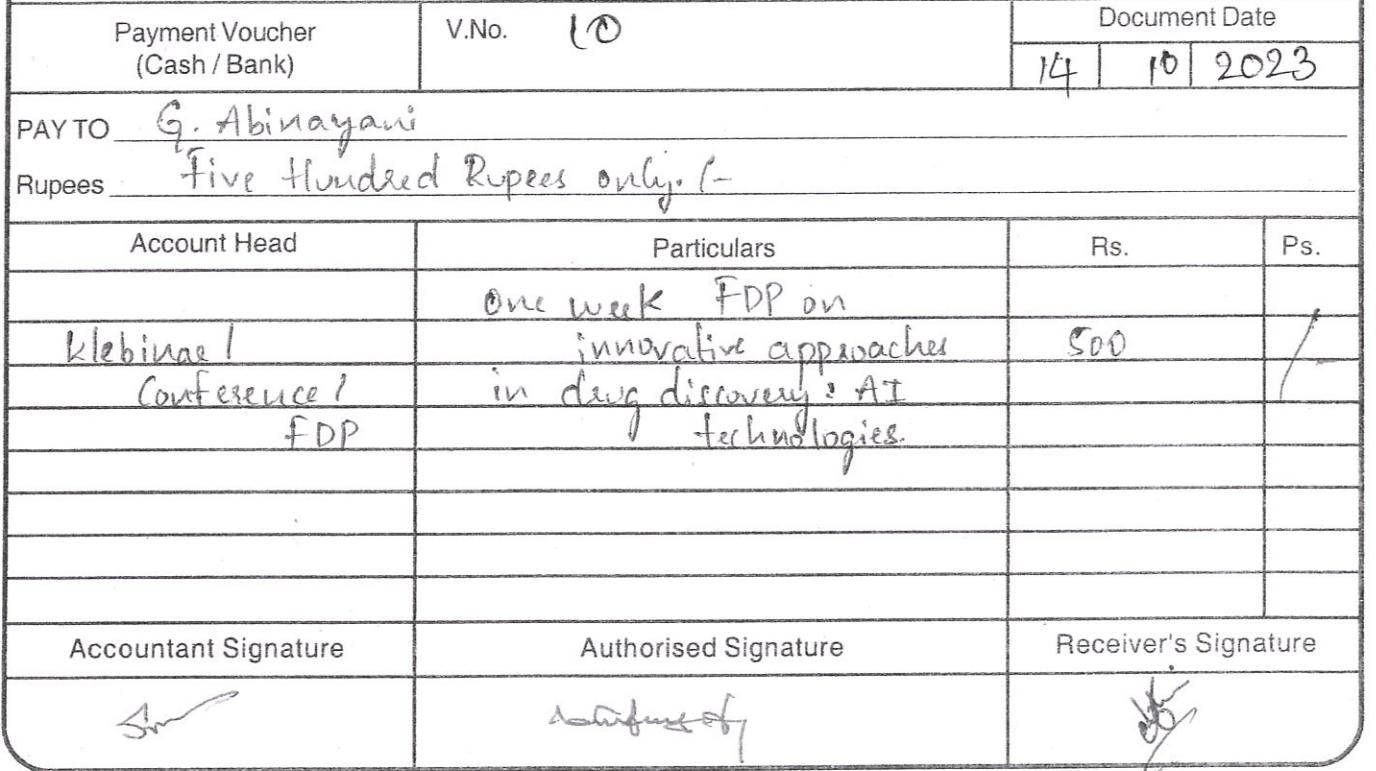 Payment Voucher
(Cash / Bank)
V.No. 10
Document Date
14 10 2023
PAY TO G. Abinayani
Rupees Five Hundred Rupees only. /-
Account Head Particulars Rs. Ps.
One week FDP on
Klebinae / innovative approaches 500 /-
Conference / in drug discovery : AI
FDP technologies.
Accountant Signature Authorised Signature Receiver's Signature